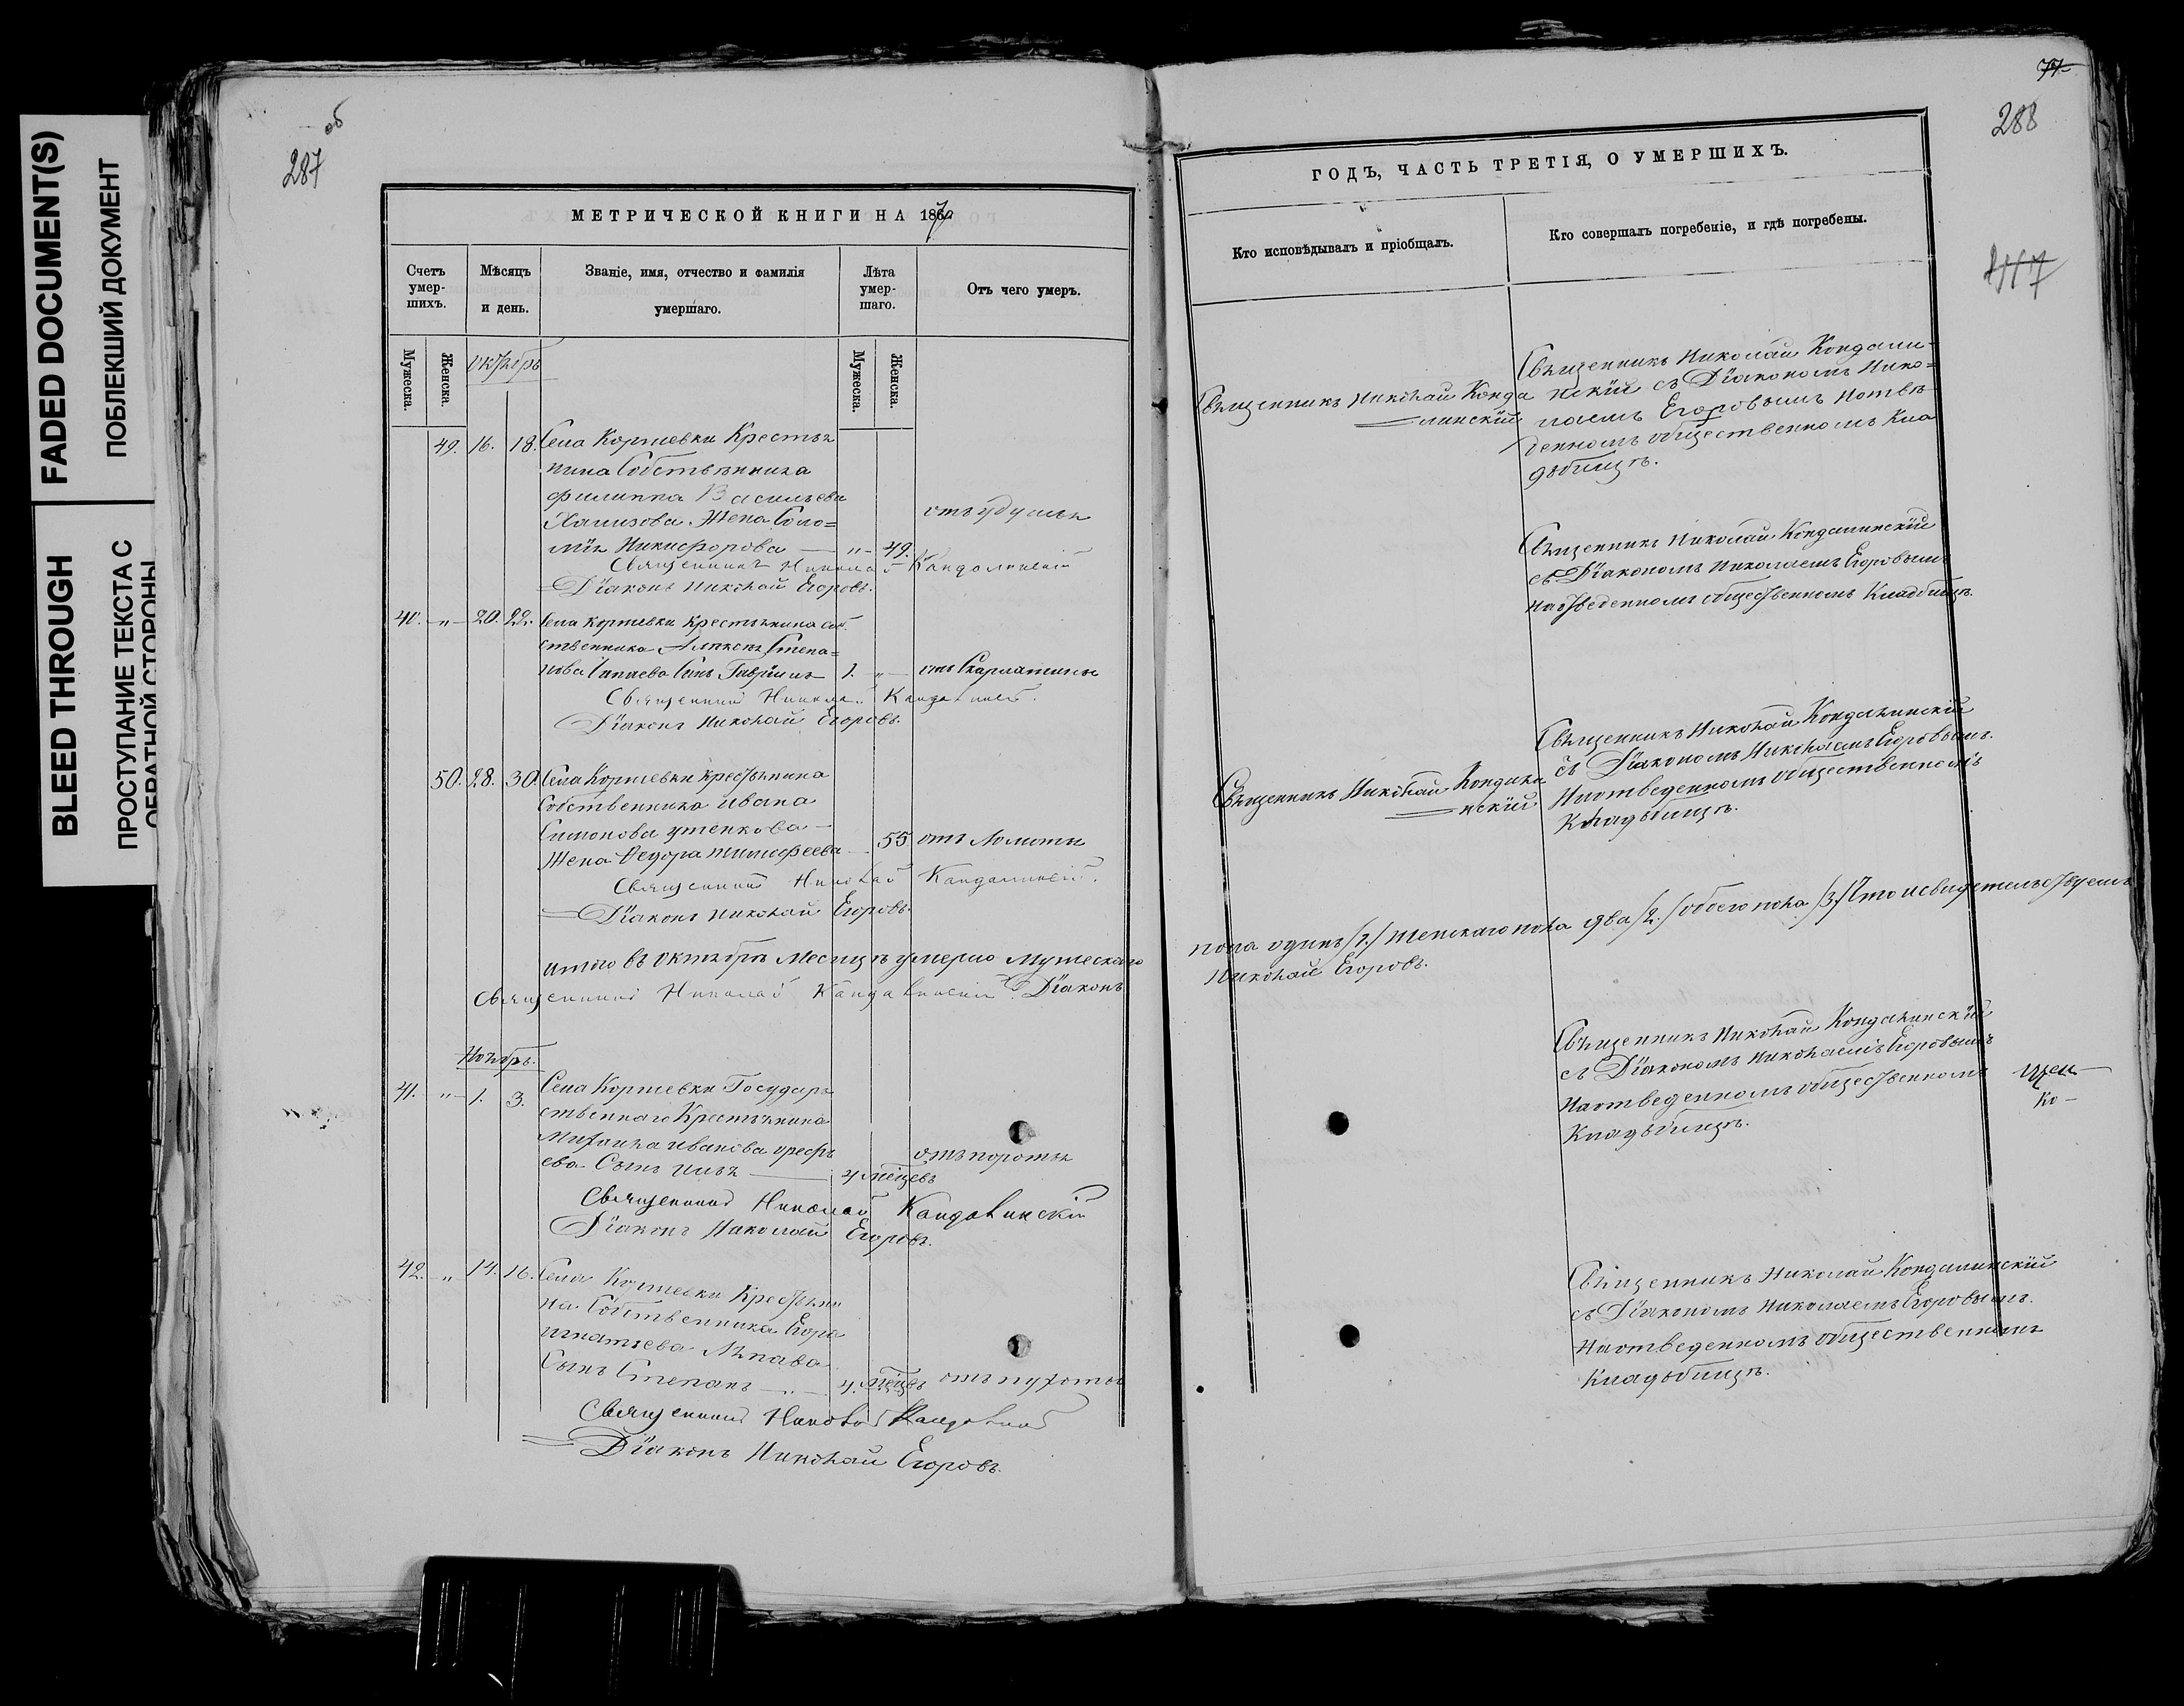 FADED DOCUMENT(S)
ПОБЛЕКШИЙ ДОКУМЕНТ
BLEED THROUGH
ПРОСТУПАНИЕ ТЕКСТА С
ОБРАТНОЙ СТОРОНЫ
об
287
МЕТРИЧЕСКОЙ КНИГИ НА 1870
Счетъ умер-шихъ.
Мѣсяцъ и день.
Званіе, имя, отчество и фамилія умершаго.
Лѣта умер-шаго.
Отъ чего умеръ.
Мужеска.
Женска.
Октябрь
Мужеска.
Женска.
49. 16. 18. Села Коржевки Крестья
нина Собственника
Филиппа Васильева
Жена Соло=
мія Никифорова — „ — 49.
отъ удушья
Священникъ Николай Кандалинскій
Діаконъ Николай Егоровъ.
40. „ 20. 22. Села Коржевки Крестьянина соб
ственника Алексѣя Степа=
нова Сапаева Сынъ Гавріилъ 1. „ — отъ Скарлатины
Священникъ Николай Кандалинскій.
Діаконъ Николай Егоровъ.
50. 28. 30. Села Коржевки крестьянина
Собственника ивана
Симонова утенкова —
Жена Ѳедора тимофеева 55 отъ Ломоты
Священникъ Николай Кандалинскій.
Діаконъ Николай Егоровъ.
итого въ октябрѣ Месяцѣ умерло мужескаго
Священникъ Николай Кандалинскій. Діаконъ
Ноябрь.
41. „ 1. 3. Села Коржевки Государ
ственнаго Крестьянина
Михаила иванова
ева Сынъ илья — 4 мѣцевъ
Священникъ Николай Кандалинскій
Діаконъ Николай Егоровъ.
42. „ 14. 16. Села Коржевки Крестьяни
на Собственника Егора
игнатьева Ляпава
Сынъ Степанъ — „ — 4. мѣцевъ
Священникъ Николай Кандалинскій
Діаконъ Николай Егоровъ.
77
288
ГОДЪ, ЧАСТЬ ТРЕТІЯ, О УМЕРШИХЪ.
Кто исповѣдывалъ и пріобщалъ.
Кто совершалъ погребеніе, и гдѣ погребены.
Священникъ Николай Конда
линскій
Священникъ Николай Кондали-
нскій съ Діакономъ Нико=
лаемъ Егоровымъ Наотве
денномъ общественномъ Кла
дбищѣ.
Священникъ Николай Кондалинскій
съ Діакономъ Николаемъ Егоровымъ
Наотведенномъ общественномъ Кладбищѣ.
Священникъ Николай Кондали
нскій
Священникъ Николай Кондалинскій
съ Діакономъ Николаемъ Егоровымъ.
Наотведенномъ общественномъ
Кладбищѣ.
пола одинъ /1./ женскаго пола два /2./ обоего пола /3./ Что исвидетельствуемъ
Николай Егоровъ.
Священникъ Николай Кондалинскій
съ Діакономъ Николаемъ Егоровымъ
Наотведенномъ общественномъ
Кладбищѣ.
Священникъ Николай Кондалинскій
съ Діакономъ Николаемъ Егоровымъ.
Наотведенномъ общественномъ
Кладбищѣ.